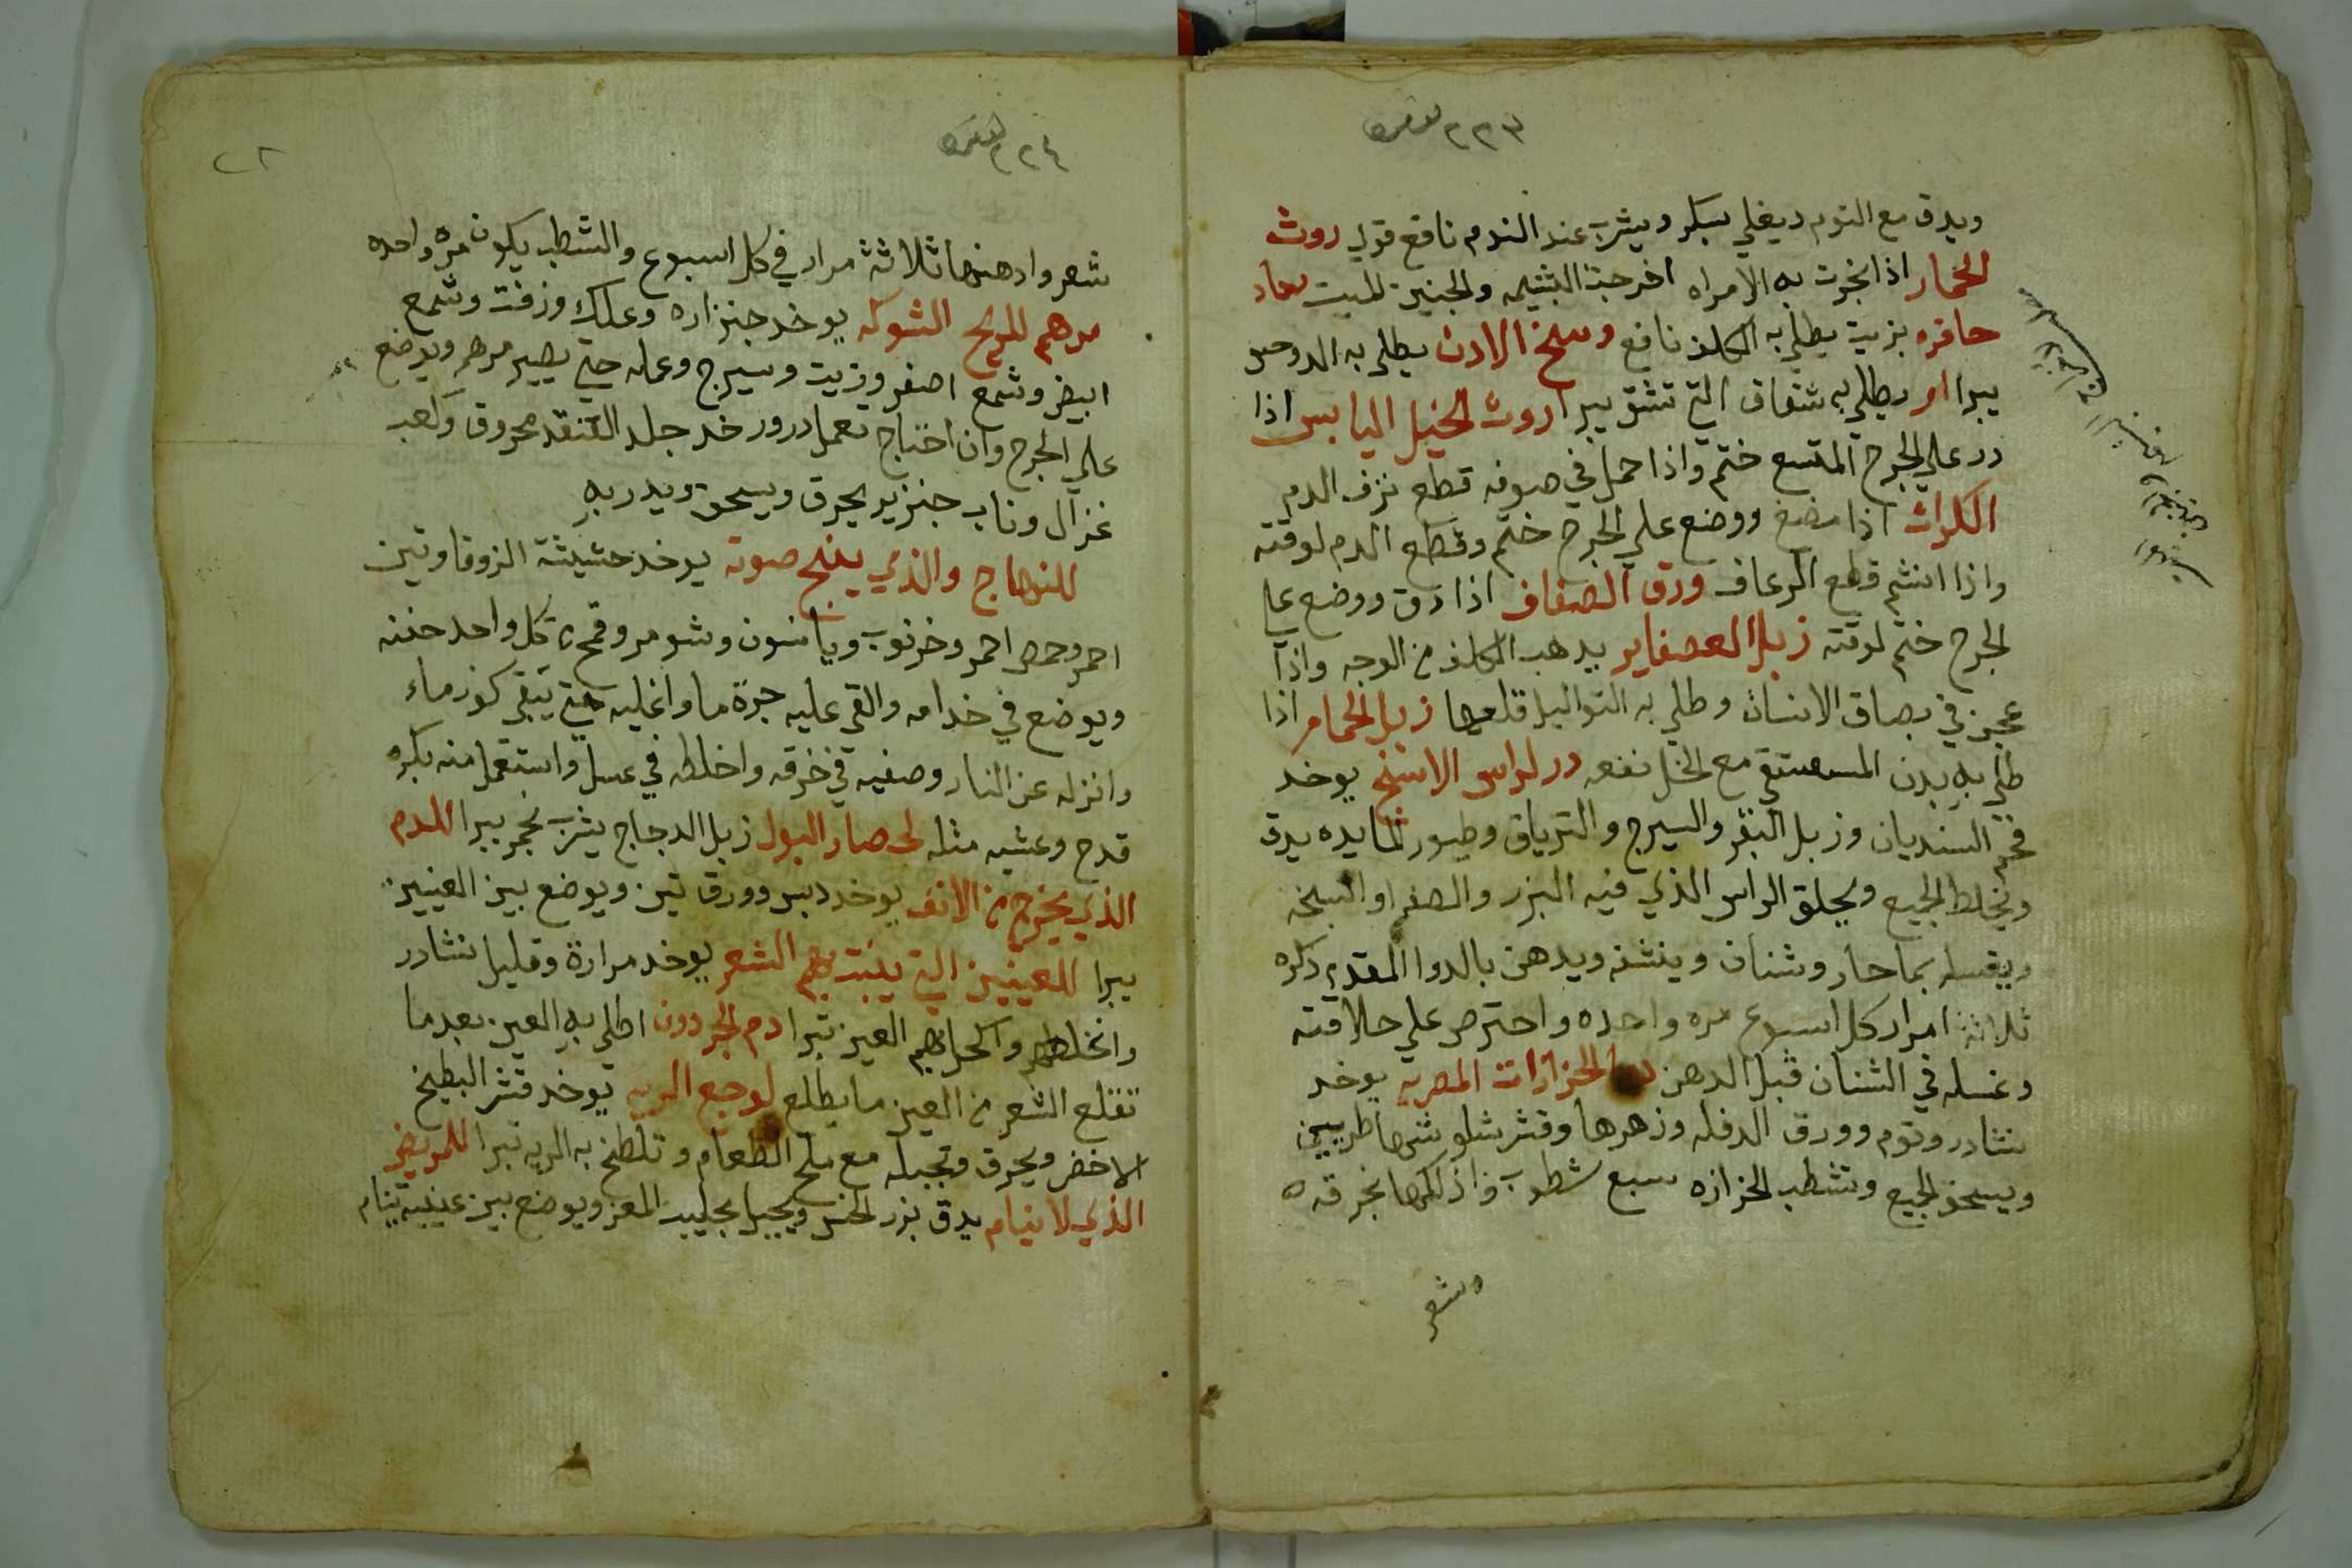 ٢٢٣
ويدق مع التوم ويغلي بسكر ويشرب عند الندم نافع قوي روث
الحمار اذا بخرت به الامراه اخرجت البشيمه والجنين الميت رماد
حافره بزيت يطلي به الكلف نافع وسخ الادن يطلي به الدوحس
يبرا او يطلي به شقاق التي تشقق يبرا روث الخيل اليابس اذا
در علي الجرح المتسع ختم واذا حمل في صوفه قطع نزف الدم
الكراث اذا مضغ ووضع علي الجرح ختم وقطع الدم لوقته
واذا انشم قطع الرعاف ورق الصفاف اذا دق ووضع علي
الجرح ختم لوقته زبل العصفاير يدهب الكلف من الوجه واذا
عجن في بصاق الانسان وطلي به التواليل قلعها زبل الحمام اذا
طلي به بدن المستسقي مع الخل نفعه در لراس الاسنخ يوخد
فحم السنديان وزبل البقر والسيرج والترياق وطيور المايده يدق
ويخلط الجميع ويحلق الراس الذي فيه البزر والصفرا والسخه
ويغسله بما حار وشنان وينشفه ويدهن بالدوا المقدم دكره
ثلاثة امرار كل اسبوع مره واحده واحترص علي حلاقته
وغسله في الشنان قبل الدهن الحزازات المصريه يوخد
نشادر وتوم وورق الدفله وزهرها وقشر شلوشها طريين
ويسحق الجميع وتشطب الحزازه سبع شطوب واذلكها بخرقه
وشعر
٢٢٤
شعر وادهنها ثلاثة مرار في كل اسبوع والشطب يكون مره واحده
مرهم للريح الشوكه يوخد جنزاره وعلك وزفت وشمع
ابيض وشمع اصفر وزيت وسيرج وعمله حتي يصير مرهم ويوضع
علي الجرح وان احتاج تعمل درور خد جلد القنفد محروق وكعب
غزال وناب خنزير يحرق ويسحق ويدر به
للنهاج والذي ينبح صوته يوخد حشيشة الزوفا وتين
احمر وحمص احمر وخرنوب ويانسون وشومر وقمح من كل واحد حفنه
ويوضع في خدامه والقي عليه جرة ما واغليه حتي يبقي كوز ماء
وانزله عن النار وصفيه في خرقه واخلطه في عسل واستعمل منه بكره
قدح وعشيه مثله لحصار البول زبل الدجاج يشرب بخمر يبرا للدم
الذي يخرج من الانف يوخد دبس وورق تين ويوضع بين العينين
يبرا للعينين التي ينبت بهم الشعر يوخد مرارة وقليل نشادر
واخلطهم واكحل بهم العين تبرا دم الجردون اطلي به العين بعد ما
تقلع الشعر من العين ما يطلع لوجع الريه يوخد قشر البطيخ
الاخضر ويحرق وتجبله مع ملح الطعام وتلطخ به الريه تبرا للمريض
الذي لا ينام يدق بزر الخس ويجبل بحليب المعز ويوضع بين عينيه ينام